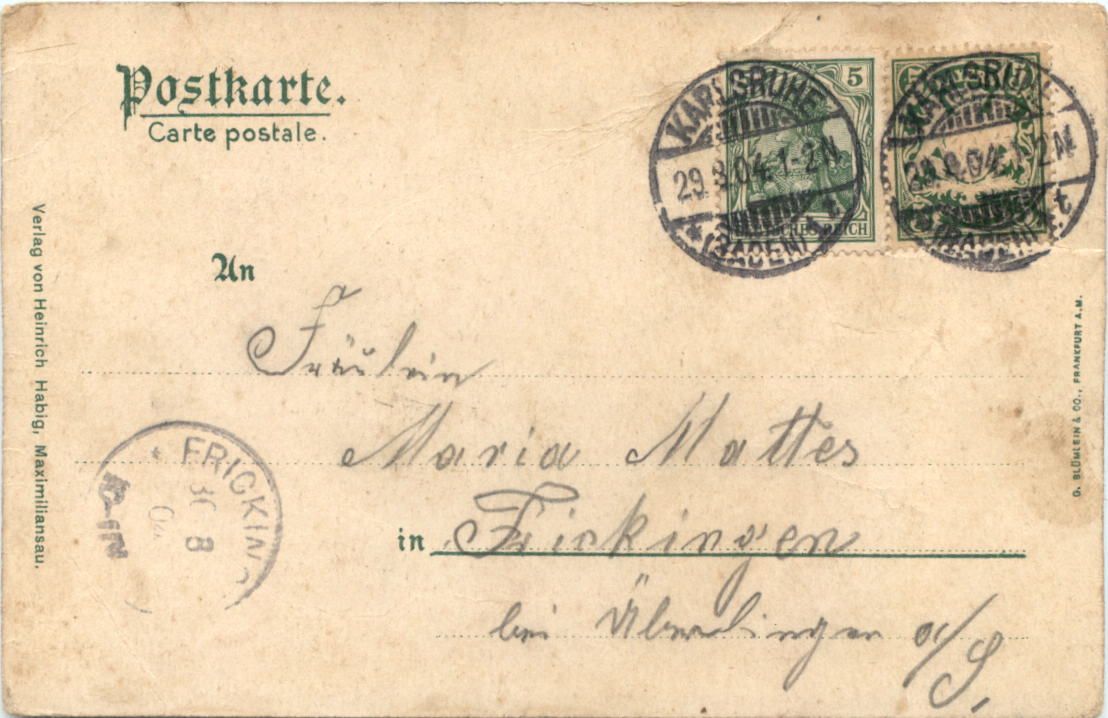 Postkarte.
Carte postale.
5
KARLSRUHE
29.8.04.1-2N
*(BADEN) * t
REICH
5
KARLSRUHE
29.8.04.1-2N
(BADEN) * t
An
Fräulein
Maria Mattes
in Frickingen
bei Überlingen a/S.
FRICKING
30 8
04
Verlag von Heinrich Habig, Maximiliansau.
G. BLÜMLEIN & CO., FRANKFURT A.M.